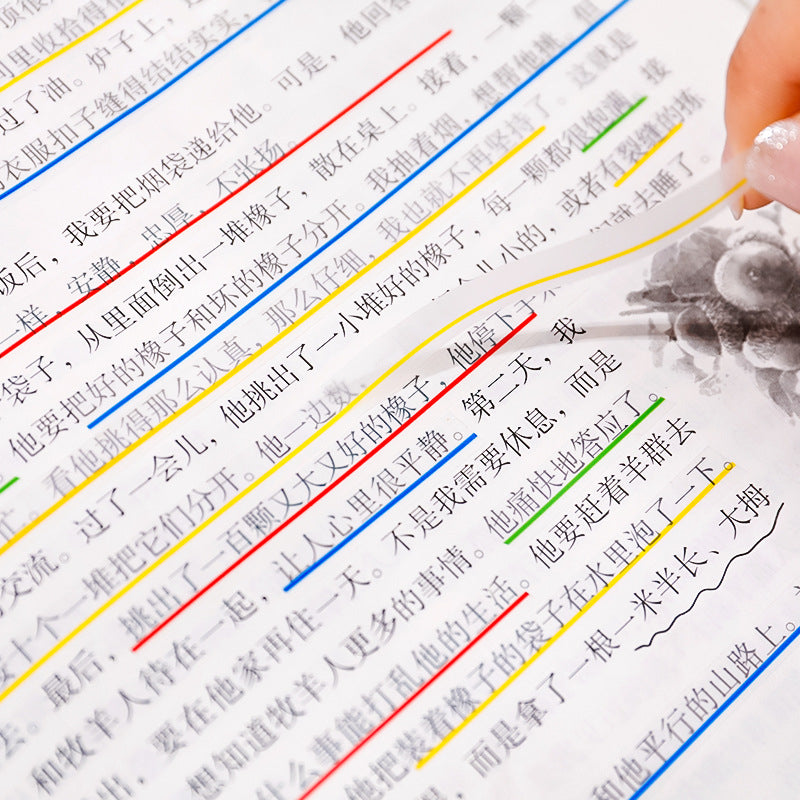 里收拾得很
过了油。炉子上，
衣服扣子缝得结结实实，
饭后，我要把烟袋递给他。可是，他回答
一样，安静，忠厚，不张扬。
袋子，从里面倒出一堆橡子，散在桌上。接着，一颗一
他要把好的橡子和坏的橡子分开。我抽着烟，想帮他挑。但
看他挑得那么认真，那么仔细，我也就不再坚持了。这就是
交流。过了一会儿，他挑出了一小堆好的橡子，每一颗都很饱满。接
十个一堆把它们分开。他一边数， 个儿小的，或者有裂缝的拣
最后，挑出了一百颗又大又好的橡子，他停下手 们就去睡了。
和牧羊人待在一起，让人心里很平静。第二天，我
出，要在他家再住一天。不是我需要休息，而是
想知道牧羊人更多的事情。他痛快地答应了。
什么事能打乱他的生活。他要赶着羊群去
他把装着橡子的袋子在水里泡了一下。
而是拿了一根一米半长、大拇
和他平行的山路上。